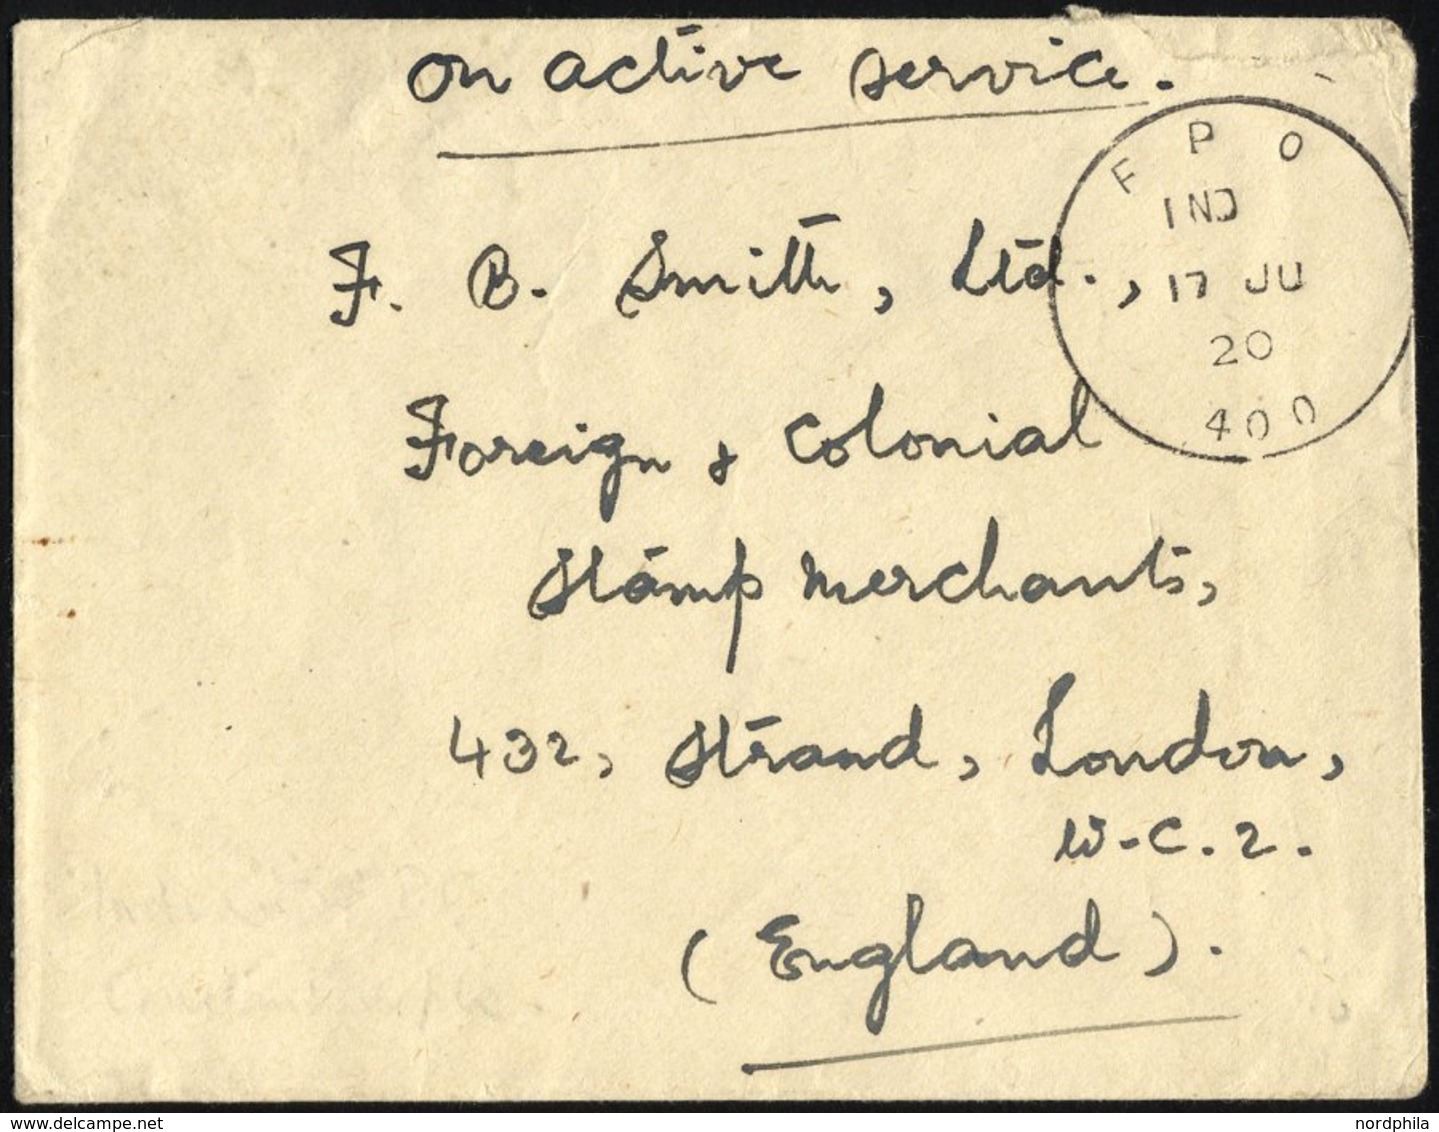 on active service.
F P O
IND
17 JU
20
400
F. B. Smith, Ltd.,
Foreign & Colonial
Stamp Merchants,
432, Strand, London,
W.C.2.
(England).
www.delcampe.net
nordphila